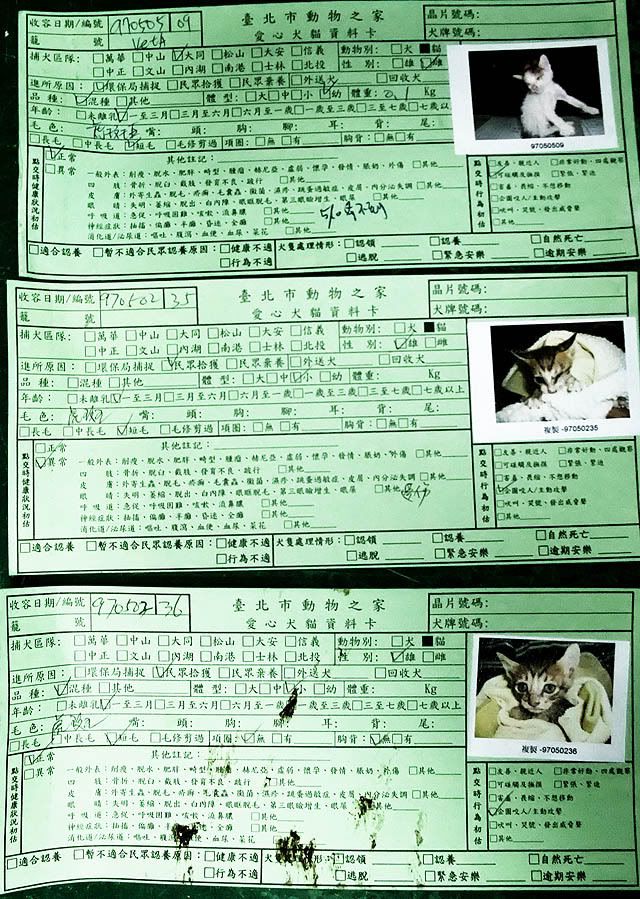 收容日期/編號 970505 09 臺北市動物之家 晶片號碼:
籠 號 愛心犬貓資料卡 犬牌號碼:
捕犬區隊: □萬華 □中山 ☑大同 □松山 □大安 □信義 動物別: □犬 ■貓
□中正 □文山 □內湖 □南港 □士林 □北投 性 別: □雄 ☑雌
進所原因: □環保局捕捉 □民眾拾獲 □民眾棄養 □外送犬 □回收犬
品 種: ☑混種 □其他 體 型: □大 □中 □小 ☑幼 體重: 0.1 Kg
年齡: □未離乳 ☑一至三月 □三月至六月 □六月至一歲 □一歲至三歲 □三至七歲 □七歲以上
毛 色: 嘴: 頭: 胸: 腳: 耳: 背: 尾:
□長毛 □中長毛 ☑短毛 □毛修剪過 項圈: □無 □有 胸背: □無 □有
97050509
點交時健康狀況初估
☑正常 其他註記:
□異常 一般外表: 削瘦、脫水、肥胖、畸型、腫瘤、赫尼亞、虛弱、懷孕、發情、脹奶、外傷 □其他
四 肢: 骨折、脫臼、截肢、發育不良、跛行 □其他
皮 膚: 外寄生蟲、脫毛、疥癬、毛囊蟲、黴菌、濕疹、跳蚤過敏症、皮屑、內分泌失調 □其他
眼 睛: 失明、萎縮、脫出、白內障、眼瞼脫毛、第三眼瞼增生、眼屎 □其他
呼 吸 道: 急促、呼吸困難、咳嗽、流鼻膿 □其他
神經症狀: 抽搐、偏癱、半癱、昏迷、全癱 □其他
消化道/泌尿道: 嘔吐、腹瀉、血便、血尿、菜花 □其他
點交時行為初估
□友善、親近人 □非常好動、四處觀察
□可碰觸及撫摸 □緊張、緊迫
□害羞、長縮、不想移動
□企圖咬人/主動攻擊
□吠叫、哭號、發出威脅聲
□其他
□適合認養 □暫不適合民眾認養原因: □健康不適 犬隻處理情形: □認領 □認養 □自然死亡
□行為不適 □逃脫 □緊急安樂 □逾期安樂
收容日期/編號 970502 35 臺北市動物之家 晶片號碼:
籠 號 愛心犬貓資料卡 犬牌號碼:
捕犬區隊: □萬華 □中山 □大同 □松山 □大安 □信義 動物別: □犬 ■貓
□中正 □文山 □內湖 □南港 □士林 □北投 性 別: ☑雄 □雌
進所原因: □環保局捕捉 ☑民眾拾獲 □民眾棄養 □外送犬 □回收犬
品 種: □混種 □其他 體 型: □大 □中 ☑小 □幼 體重: Kg
年齡: □未離乳 ☑一至三月 □三月至六月 □六月至一歲 □一歲至三歲 □三至七歲 □七歲以上
毛 色: 嘴: 頭: 胸: 腳: 耳: 背: 尾:
□長毛 □中長毛 ☑短毛 □毛修剪過 項圈: □無 □有 胸背: □無 □有
複製 -97050235
點交時健康狀況初估
□正常 其他註記:
☑異常 一般外表: 削瘦、脫水、肥胖、畸型、腫瘤、赫尼亞、虛弱、懷孕、發情、脹奶、外傷 □其他
四 肢: 骨折、脫臼、截肢、發育不良、跛行 □其他
皮 膚: 外寄生蟲、脫毛、疥癬、毛囊蟲、黴菌、濕疹、跳蚤過敏症、皮屑、內分泌失調 □其他
眼 睛: 失明、萎縮、脫出、白內障、眼瞼脫毛、第三眼瞼增生、眼屎 □其他
呼 吸 道: 急促、呼吸困難、咳嗽、流鼻膿 □其他
神經症狀: 抽搐、偏癱、半癱、昏迷、全癱 □其他
消化道/泌尿道: 嘔吐、腹瀉、血便、血尿、菜花 □其他
點交時行為初估
□友善、親近人 □非常好動、四處觀察
□可碰觸及撫摸 □緊張、緊迫
□害羞、長縮、不想移動
☑企圖咬人/主動攻擊
□吠叫、哭號、發出威脅聲
□其他
□適合認養 □暫不適合民眾認養原因: □健康不適 犬隻處理情形: □認領 □認養 □自然死亡
□行為不適 □逃脫 □緊急安樂 □逾期安樂
收容日期/編號 970502 36 臺北市動物之家 晶片號碼:
籠 號 愛心犬貓資料卡 犬牌號碼:
捕犬區隊: □萬華 □中山 □大同 □松山 □大安 □信義 動物別: □犬 ■貓
□中正 □文山 □內湖 □南港 □士林 □北投 性 別: ☑雄 □雌
進所原因: □環保局捕捉 ☑民眾拾獲 □民眾棄養 □外送犬 □回收犬
品 種: ☑混種 □其他 體 型: □大 □中 ☑小 □幼 體重: Kg
年齡: □未離乳 ☑一至三月 □三月至六月 □六月至一歲 □一歲至三歲 □三至七歲 □七歲以上
毛 色: 嘴: 頭: 胸: 腳: 耳: 背: 尾:
□長毛 □中長毛 ☑短毛 □毛修剪過 項圈: ☑無 □有 胸背: ☑無 □有
複製 -97050236
點交時健康狀況初估
☑正常 其他註記:
□異常 一般外表: 削瘦、脫水、肥胖、畸型、腫瘤、赫尼亞、虛弱、懷孕、發情、脹奶、外傷 □其他
四 肢: 骨折、脫臼、截肢、發育不良、跛行 □其他
皮 膚: 外寄生蟲、脫毛、疥癬、毛囊蟲、黴菌、濕疹、跳蚤過敏症、皮屑、內分泌失調 □其他
眼 睛: 失明、萎縮、脫出、白內障、眼瞼脫毛、第三眼瞼增生、眼屎 □其他
呼 吸 道: 急促、呼吸困難、咳嗽、流鼻膿 □其他
神經症狀: 抽搐、偏癱、半癱、昏迷、全癱 □其他
消化道/泌尿道: 嘔吐、腹瀉、血便、血尿、菜花 □其他
點交時行為初估
□友善、親近人 □非常好動、四處觀察
□可碰觸及撫摸 □緊張、緊迫
□害羞、長縮、不想移動
☑企圖咬人/主動攻擊
□吠叫、哭號、發出威脅聲
□其他
□適合認養 □暫不適合民眾認養原因: □健康不適 犬隻處理情形: □認領 □認養 □自然死亡
□行為不適 □逃脫 □緊急安樂 □逾期安樂